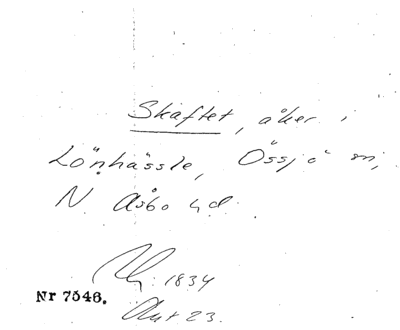 Skaftet, åker i
Lönhässle, Össjö sn,
N. Åsbo hd.
1834
Nr 7546.
Akt 23.